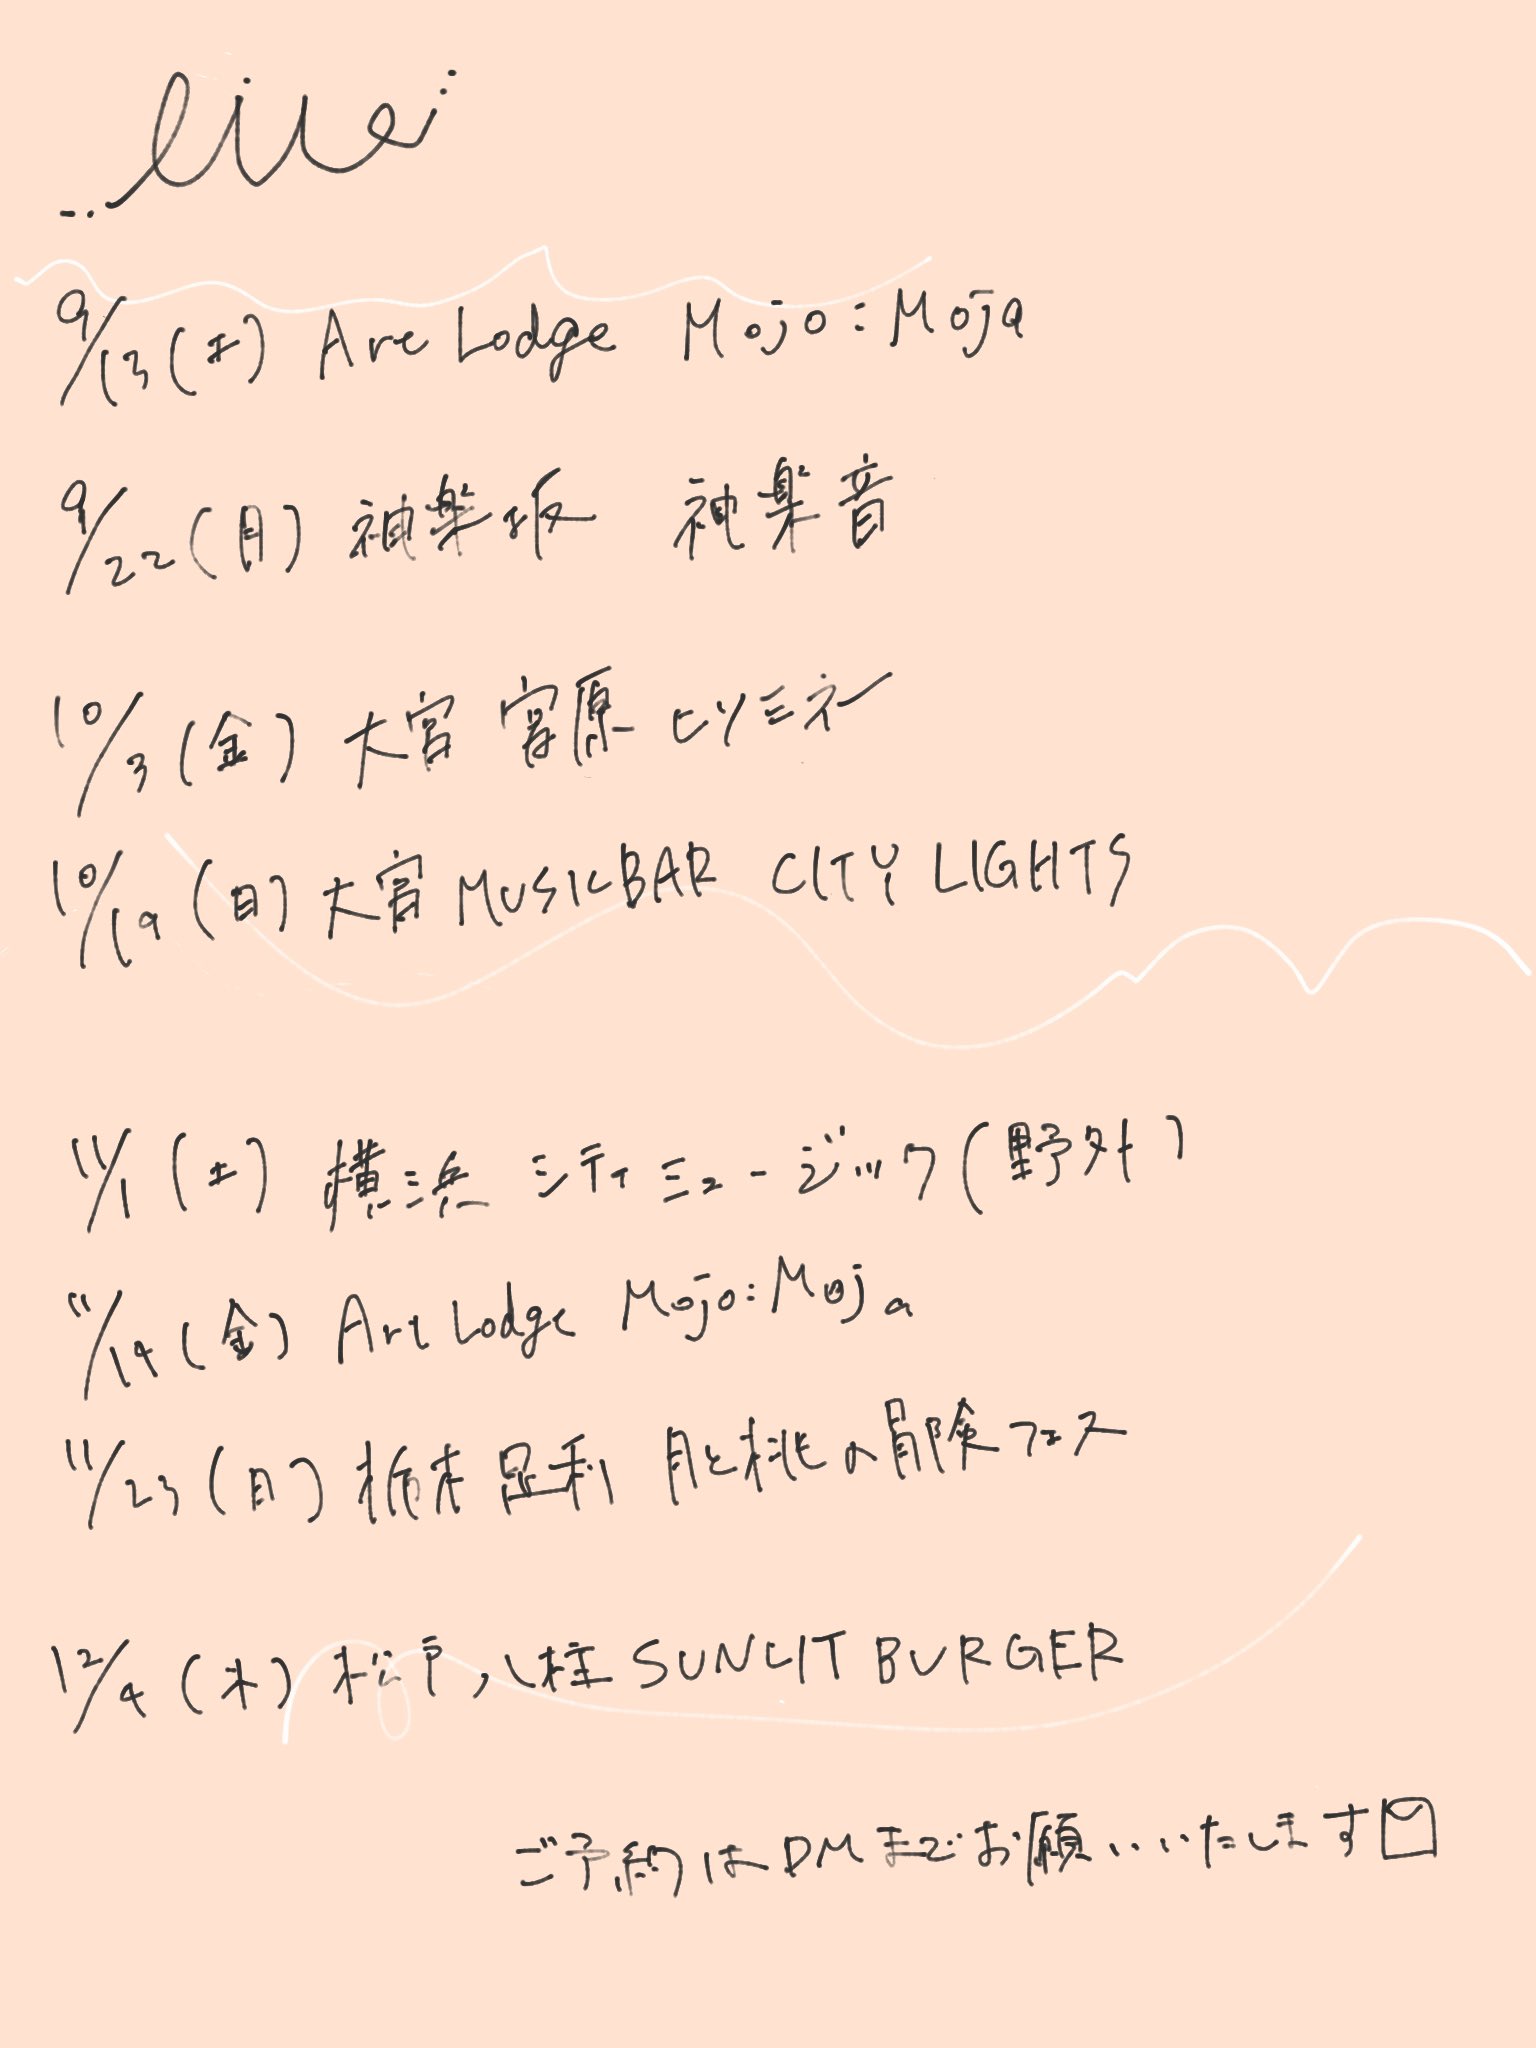 live
9/13(土) Art Lodge Mojo:Moja
9/22(月) 神楽坂 神楽音
10/3(金) 大宮 宮原 ヒソミネ
10/19(日) 大宮 MUSICBAR CITY LIGHTS
11/1(土) 横浜 シティミュージック(野外)
11/14(金) Art Lodge Mojo:Moja
11/23(日) 栃木 足利 月と桃の冒険フェス
12/4(木) 松戸 八柱 SUNLIT BURGER
ご予約はDMまでお願いいたします